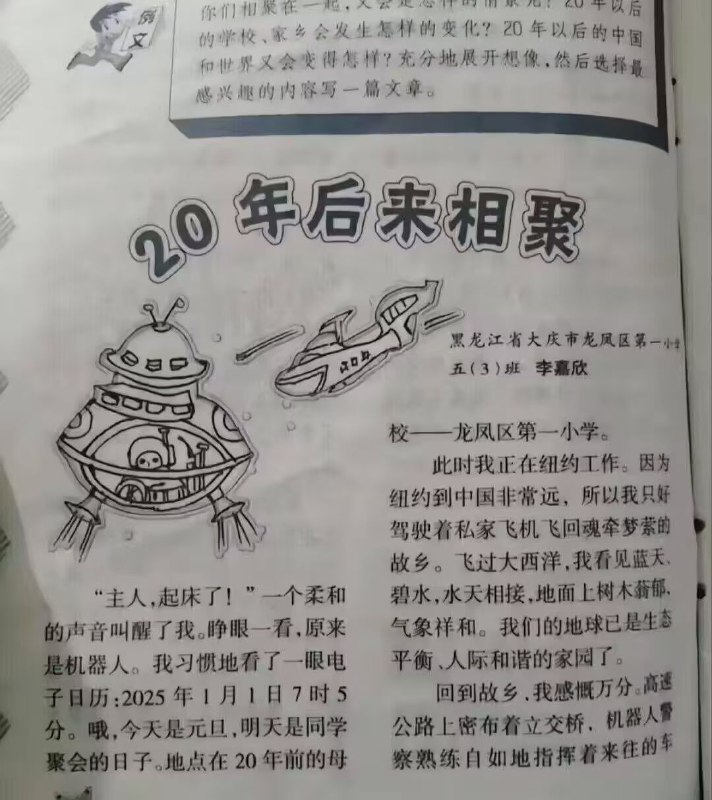 例文
你们相聚在一起,又会是怎样的情景呢?20年以后
的学校、家乡会发生怎样的变化?20年以后的中国
和世界又会变得怎样?充分地展开想像,然后选择最
感兴趣的内容写一篇文章。
20年后来相聚
黑龙江省大庆市龙凤区第一小学
五(3)班 李嘉欣
“主人,起床了!”一个柔和
的声音叫醒了我。睁眼一看,原来
是机器人。我习惯地看了一眼电
子日历:2025年1月1日7时5
分。哦,今天是元旦,明天是同学
聚会的日子。地点在20年前的母
校——龙凤区第一小学。
此时我正在纽约工作。因为
纽约到中国非常远,所以我只好
驾驶着私家飞机飞回魂牵梦萦的
故乡。飞过大西洋,我看见蓝天、
碧水,水天相接,地面上树木蓊郁,
气象祥和。我们的地球已是生态
平衡、人际和谐的家园了。
回到故乡,我感慨万分。高速
公路上密布着立交桥,机器人警
察熟练自如地指挥着来往的车